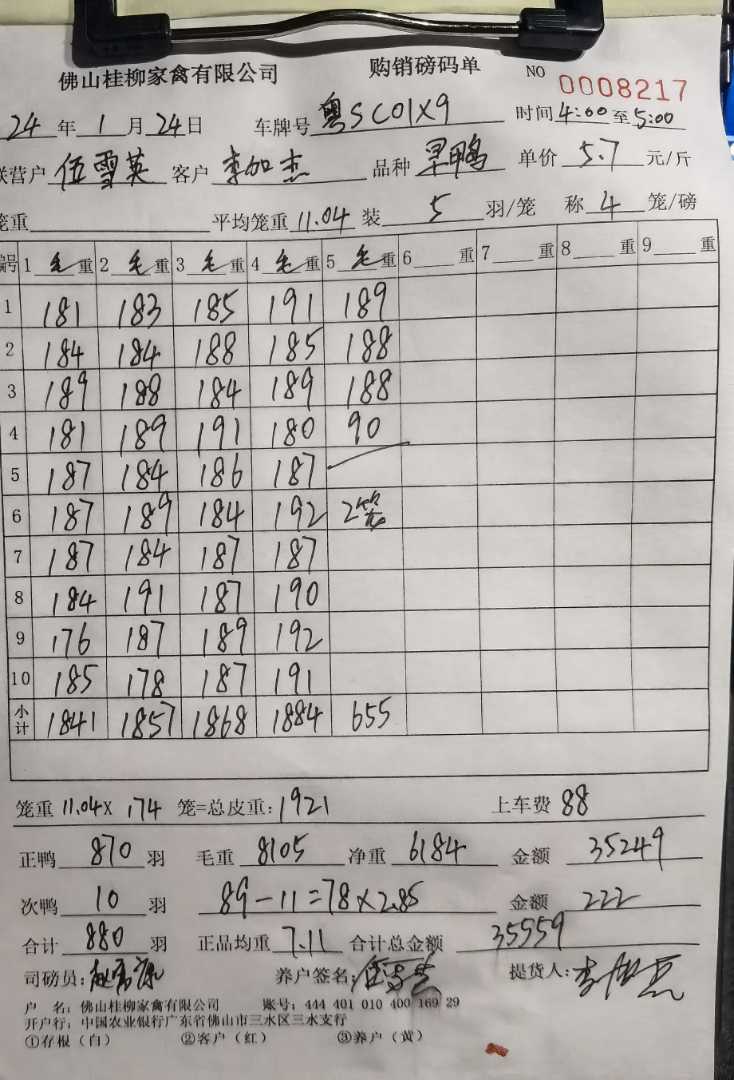 佛山桂柳家禽有限公司 购销磅码单 NO 0008217
24年1月24日 车牌号 粤SC01X9 时间4:00至5:00
联营户 伍雪英 客户 李加杰 品种 旱鸭 单价 5.7 元/斤
笼重 平均笼重 11.04 装 5 羽/笼 称 4 笼/磅
编号 1 毛重 2 毛重 3 毛重 4 毛重 5 毛重 6 重 7 重 8 重 9 重
1 181 183 185 191 189
2 184 184 188 185 188
3 189 188 184 189 188
4 181 189 191 180 90
5 187 184 186 187
6 187 189 184 192 2笼
7 187 184 187 187
8 184 191 187 190
9 176 187 189 192
10 185 178 187 191
小计 1841 1857 1868 1884 655
笼重 11.04X 174 笼=总皮重:1921 上车费 88
正鸭 870 羽 毛重 8105 净重 6184 金额 35249
次鸭 10 羽 89-11=78×2.85 金额 222
合计 880 羽 正品均重 7.11 合计总金额 35559
司磅员: 养户签名:伍雪英 提货人:李加杰
户 名:佛山桂柳家禽有限公司 账号:444 401 010 400 169 29
开户行:中国农业银行广东省佛山市三水区三水支行
①存根(白) ②客户(红) ③养户(黄)